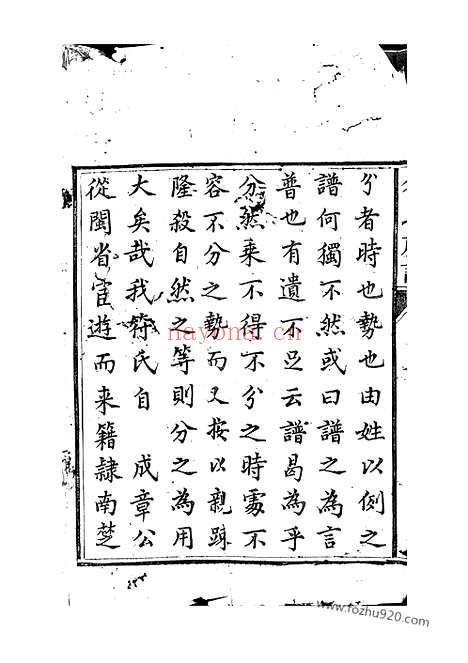 兮者時也勢也由姓以例之
譜何獨不然或曰譜之為言
普也有遺不足云譜曷為乎
分然乗不得不兮之時處不
容不分之勢而又按以親踈
隆殺自然之等則分之為用
大矣哉我符氏自 成章公
從閩省宦遊而来籍隷南楚
nayona.cn
www.fozhu920.com